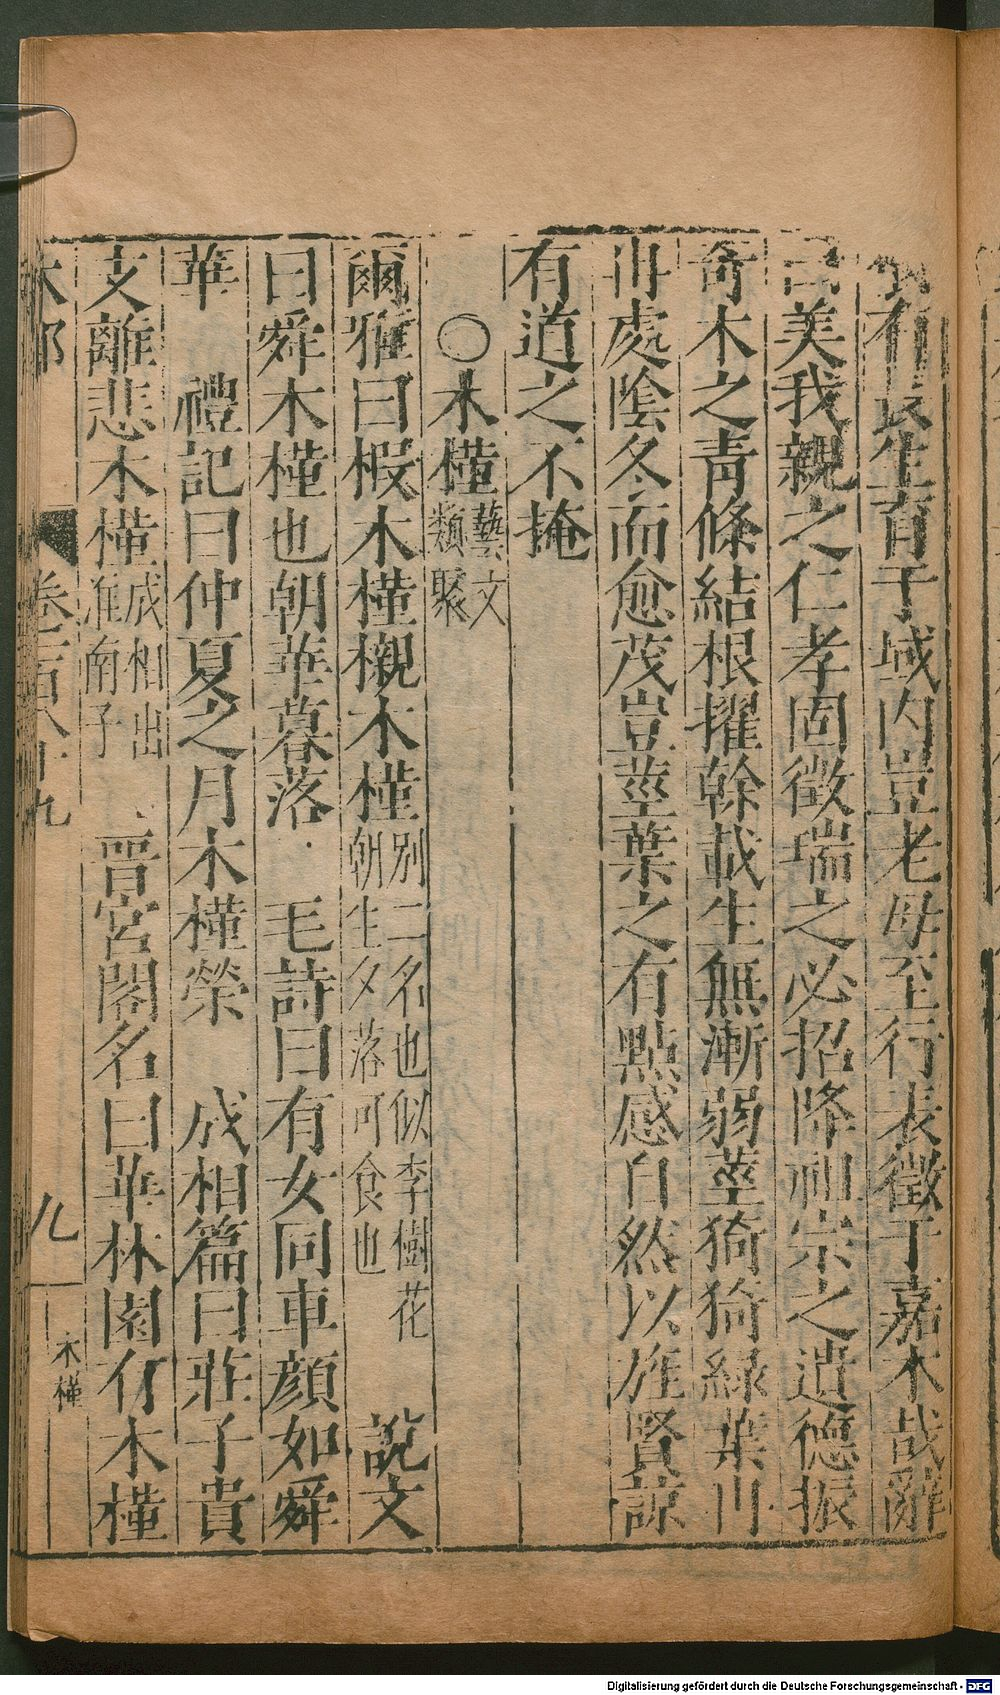 有長生育于域内豈老母至行表徵于嘉木哉辭
美我親之仁孝固徵瑞之必招降祖宗之遺德振
奇木之青條結根擢幹載生無漸弱莖猗猗緑葉冉
冉處陰冬而愈茂豈莖葉之有點感自然以旌賢諒
有道之不掩
○木槿藝文類聚
爾雅曰椵木槿櫬木槿别二名也似李樹花朝生夕落可食也 說文
曰舜木槿也朝華暮落 毛詩曰有女同車顔如舜
華 禮記曰仲夏之月木槿榮 成相篇曰莊子貴
支離悲木槿成相出淮南子 晉宮閣名曰華林園有木槿
木部 卷一百八十九 九 木槿
Digitalisierung gefördert durch die Deutsche Forschungsgemeinschaft - DFG